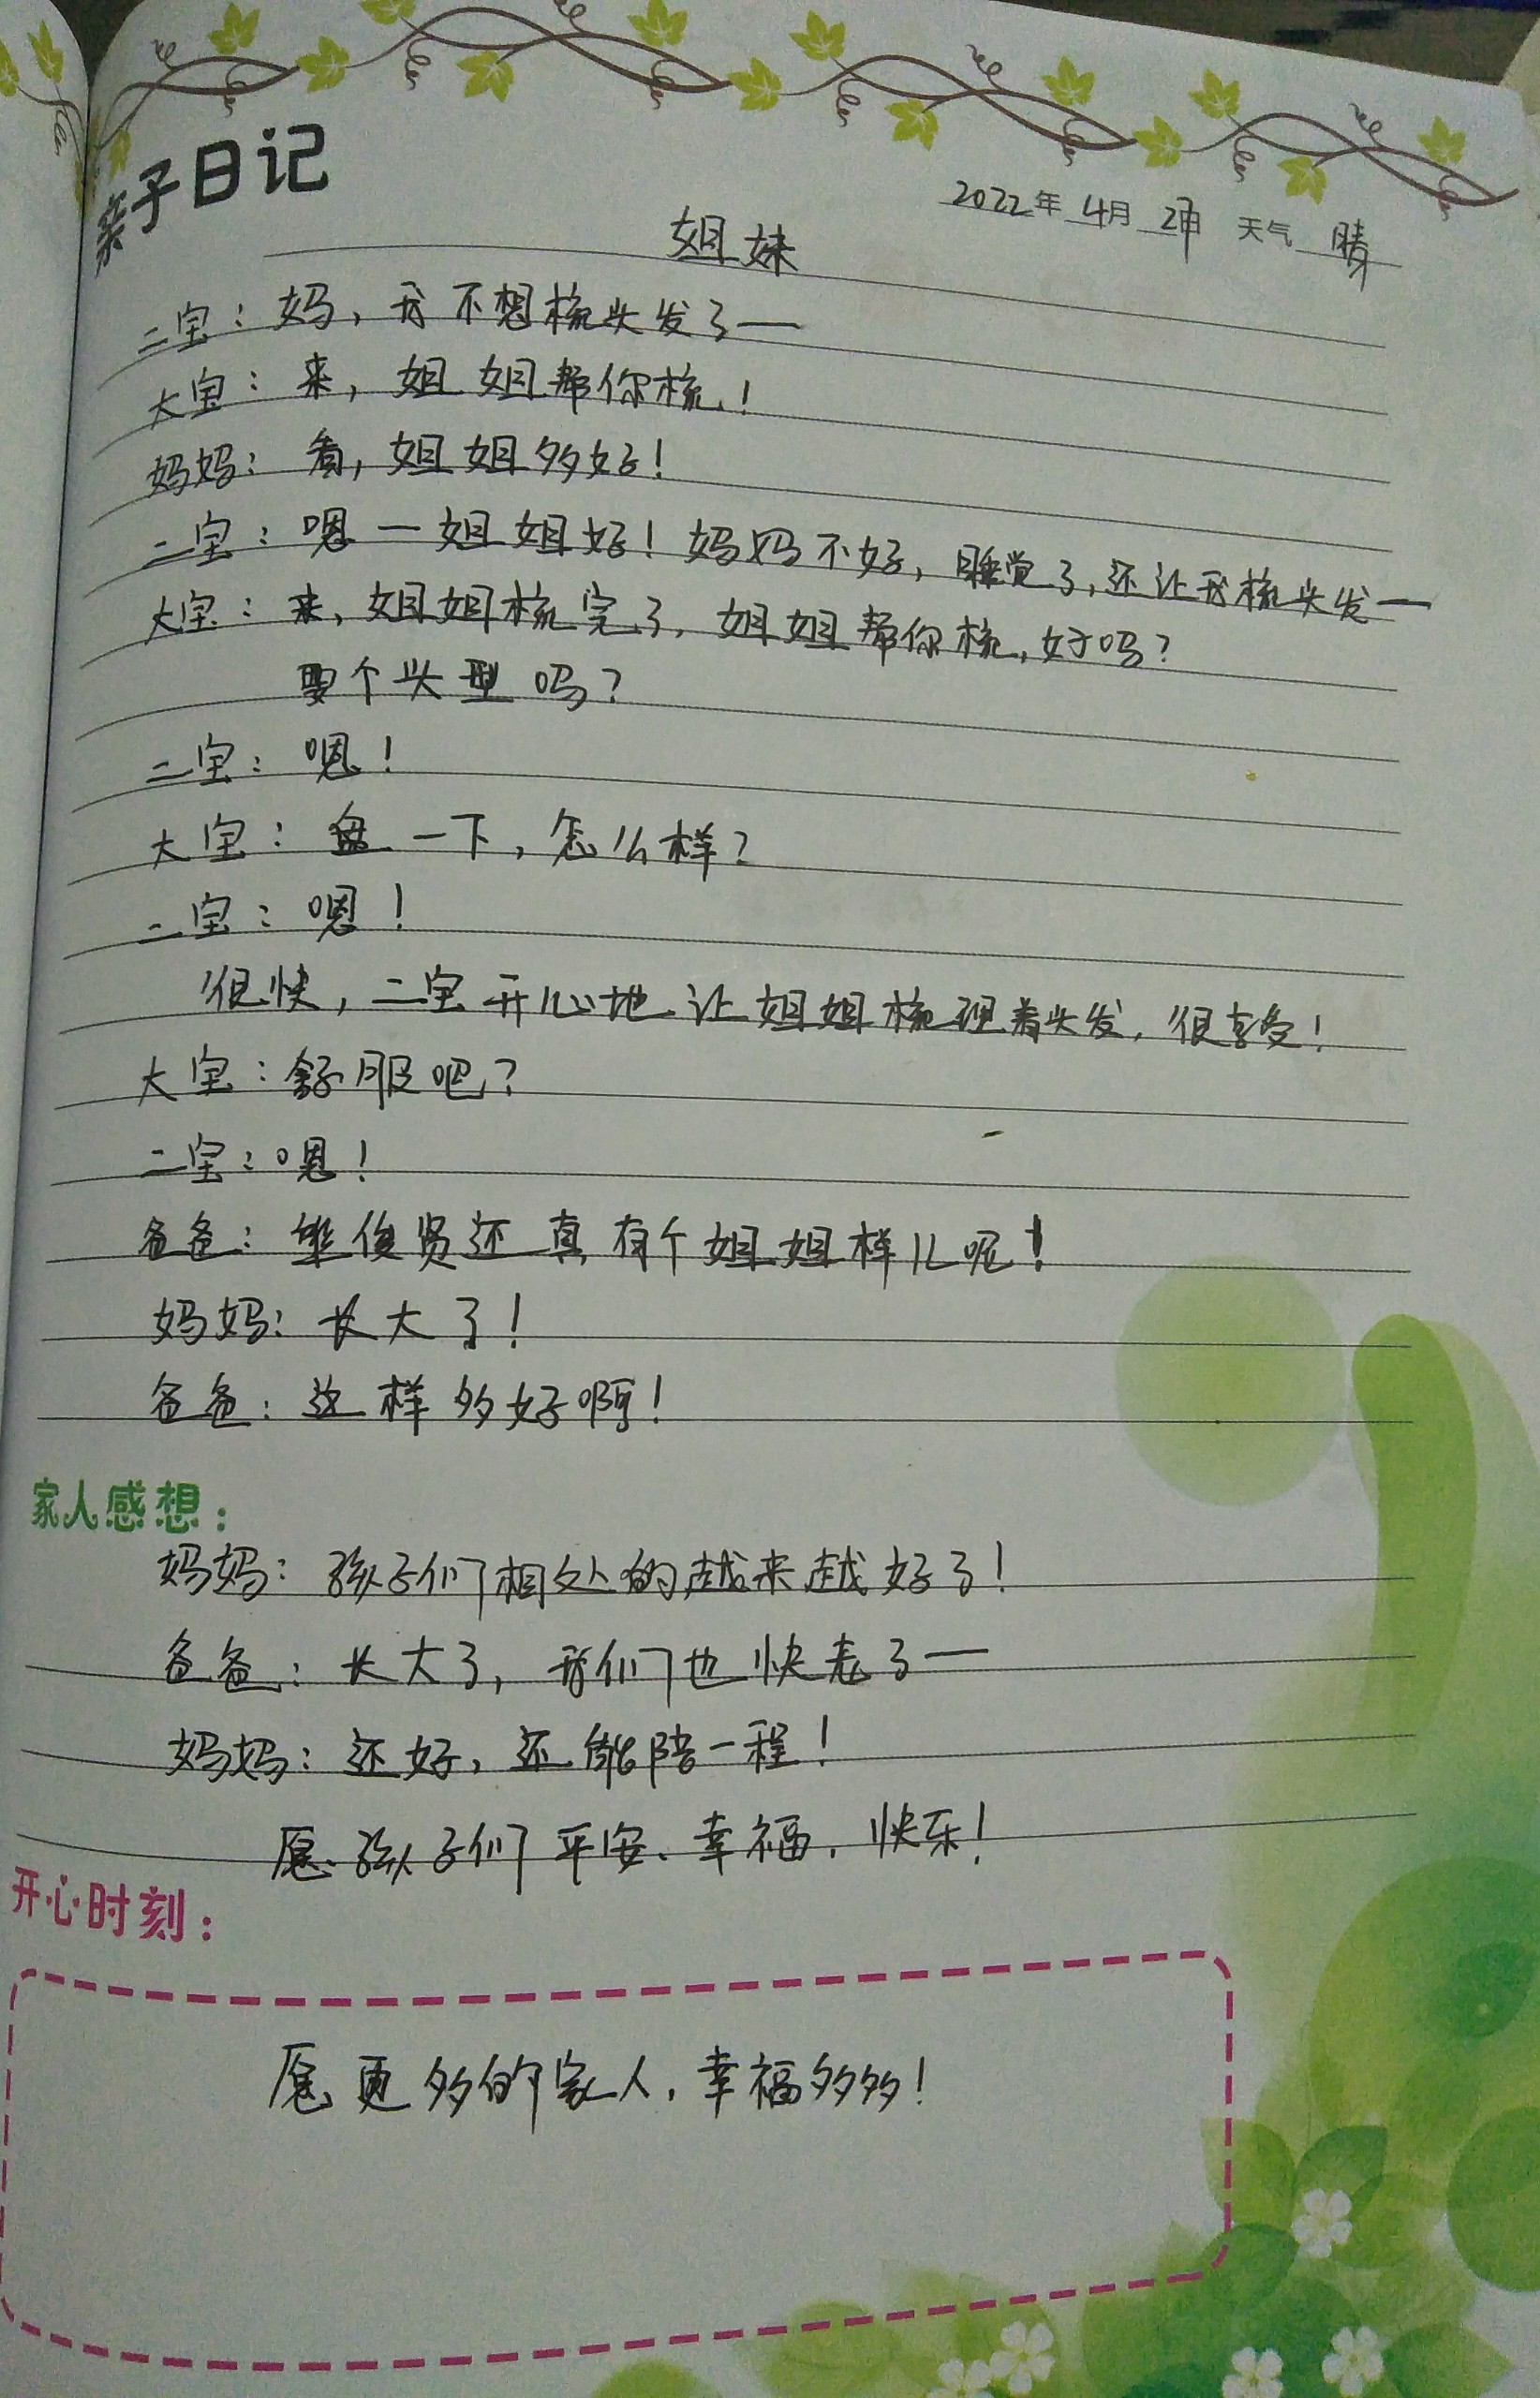 亲子日记
2022年 4月 2日 天气 晴
姐妹
二宝：妈，我不想梳头发了—
大宝：来，姐姐帮你梳！
妈妈：看，姐姐多好！
二宝：嗯—姐姐好！妈妈不好，睡觉了，还让我梳头发—
大宝：来，姐姐梳完了，姐姐帮你梳，好吗？
要个头型吗？
二宝：嗯！
大宝：盘一下，怎么样？
二宝：嗯！
很快，二宝开心地让姐姐梳理着头发，很享受！
大宝：舒服吧？
二宝：嗯！
爸爸：俊贤还真有个姐姐样儿呢！
妈妈：长大了！
爸爸：这样多好啊！
家人感想：
妈妈：孩子们相处的越来越好了！
爸爸：长大了，我们也快老了—
妈妈：还好，还能陪一程！
愿孩子们平安、幸福、快乐！
开心时刻：
愿更多的家人，幸福多多！